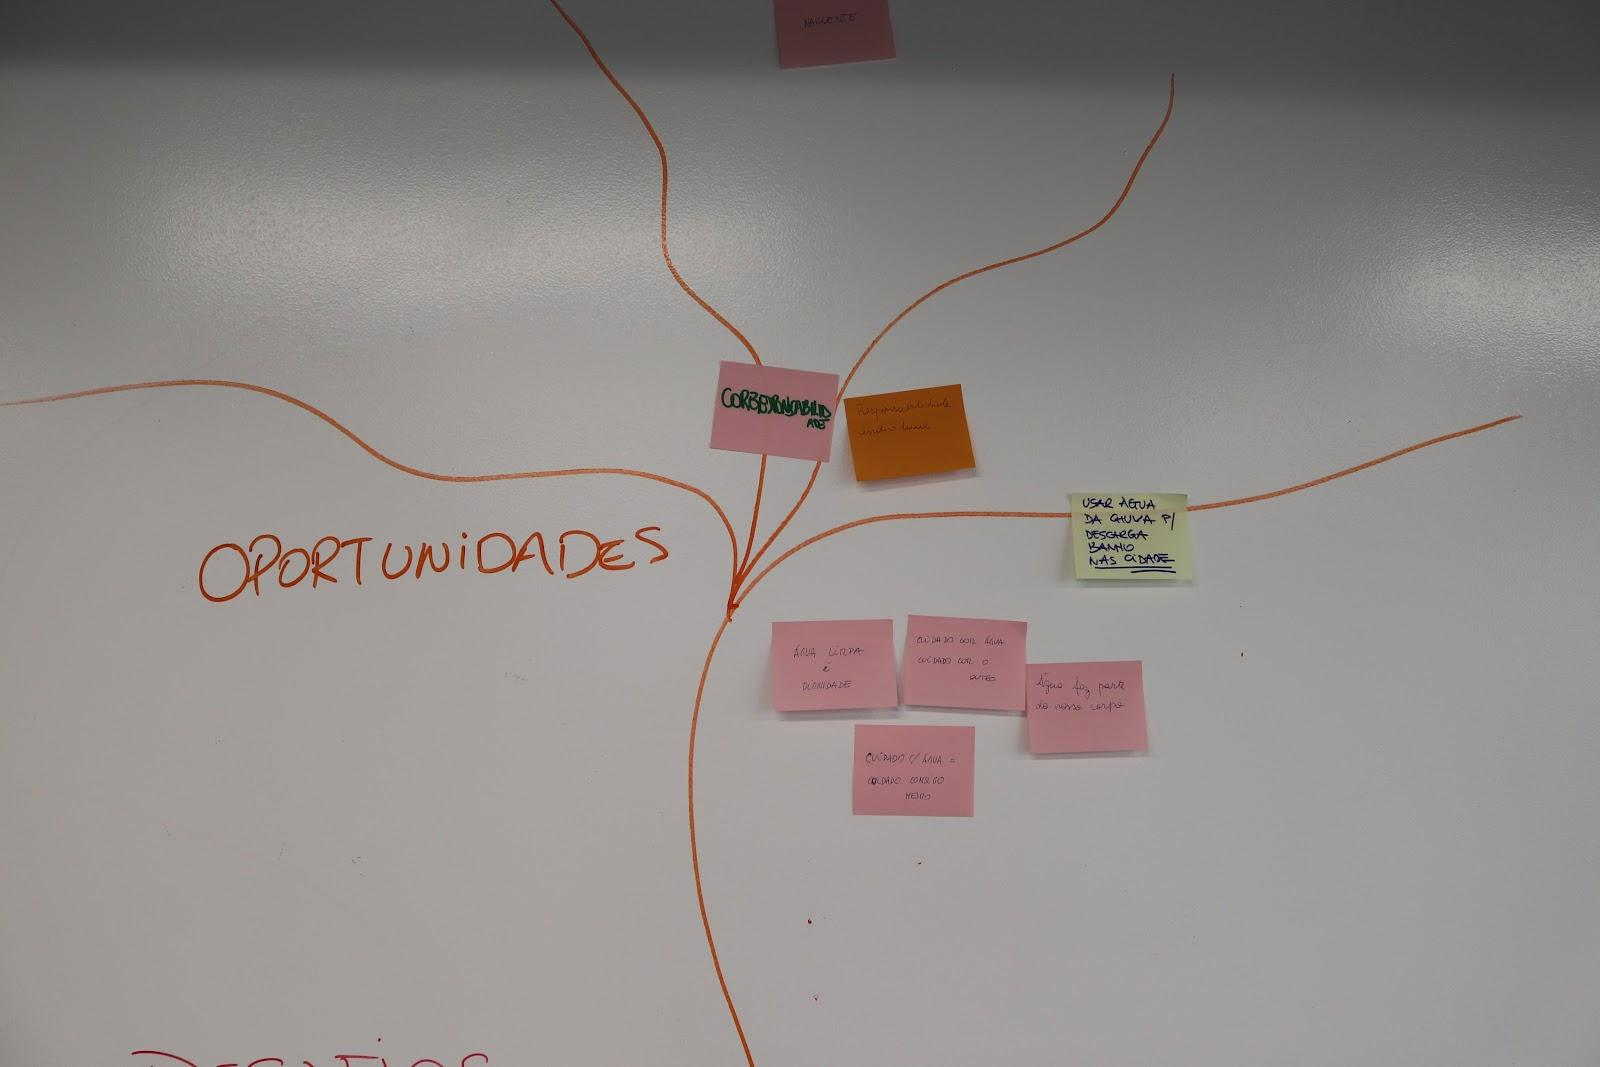 NASCENTE
CORRESPONSABILID
ADES
Responsabilidade
individual
USAR ÁGUA
DA CHUVA P/
DESCARGA
BANHO
NAS CIDADE
OPORTUNIDADES
ÁGUA LIMPA
é
DIGNIDADE
CUIDADO COM ÁGUA
CUIDADO COM O
OUTRO
Água faz parte
do nosso corpo
CUIDADO C/ ÁGUA =
CUIDADO CONSIGO
MESMO
DESAFIOS